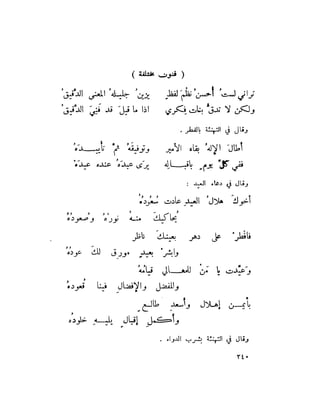 ( فنون مختلفة )
تراني لستُ أُحسنُ نظْمَ لفظٍ يزينُ جليـلهُ المعنى الدَّقيقْ
ولكن لا تدقُّ بنات فِكري اذا ما قيلَ قد فَنِيَ الدَّقيقْ
وقال في التهنئة بالفطر .
أطالَ الإلهُ بقاء الأمير وتوفيقَهُ ثمَّ تأييـــدَهُ
ففي كلّ يومٍ باقبـــالِه يرَى عيدَهُ عنده عيدَهْ
وقال في دعاء العيد :
أخوكَ هلالُ العيدِ عادت سُعُودُهُ
يُحاكيكَ منـهُ نورُهُ وصُعودُهُ
فافْطُرْ على دهر بعينكَ ناظر
وابشر بعيدٍ مورق لكَ عودُهُ
وعَيِّدت يا مَنْ للمعـــالي قيامُهُ
وللفضل والإفضال فينا قُعودهُ
بأيمـــن إهــلال وأسعدِ طالــعٍ
وأكملِ إقبالٍ يليـــهِ خلودُه
وقال في التهنئة بشرب الدواء .
٢٤٠